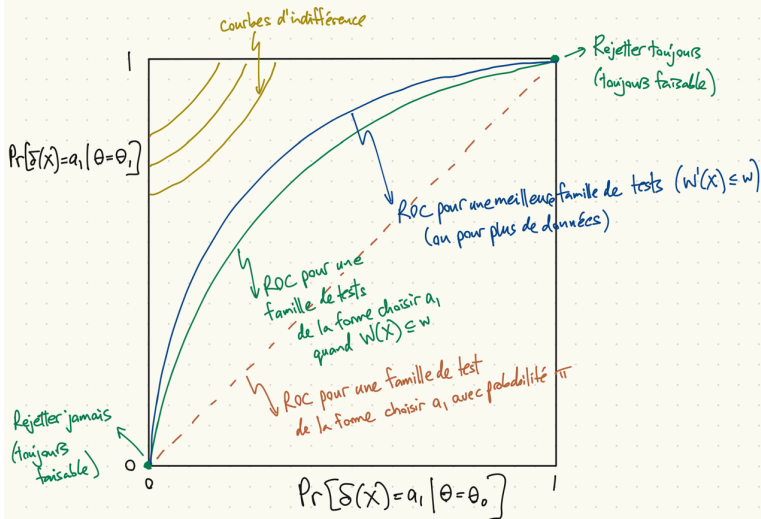 courbes d'indifférence
1
Rejetter toujours
(toujours faisable)
Pr[δ(X)=a₁|θ=θ₁]
ROC pour une meilleure famille de tests (W'(X) ≤ w)
(ou pour plus de données)
ROC pour une
famille de tests
de la forme choisir a₁
quand W(X) ≤ w
ROC pour une famille de test
de la forme choisir a₁ avec probabilité π
Rejetter jamais
(toujours
faisable)
0
0
1
Pr[δ(X)=a₁|θ=θ₀]